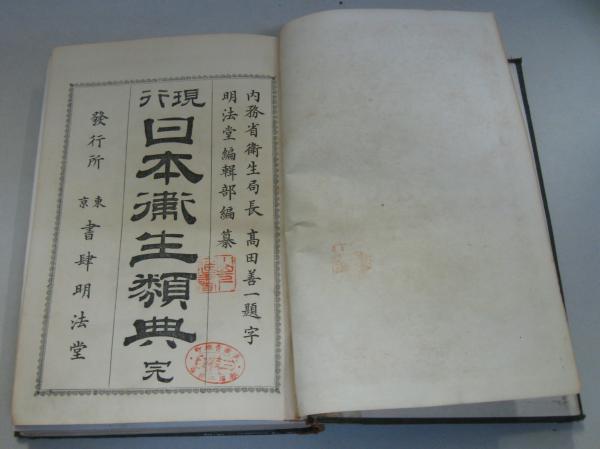 内務省衛生局長 高田善一題字
明法堂編輯部編纂
現行
日本衛生類典 完
發行所 東京 書肆明法堂